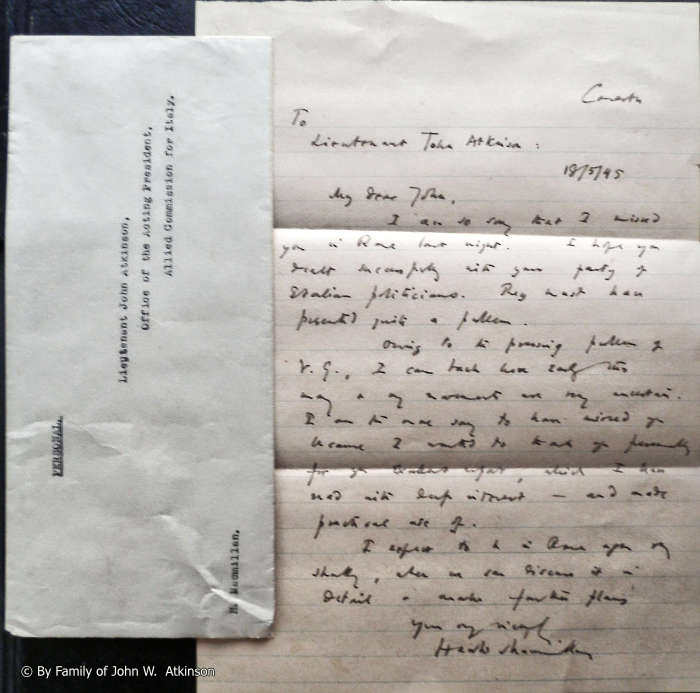 PERSONAL.
Lieutenant John Atkinson,
Office of the Acting President,
Allied Commission for Italy.
H. Macmillan.
Caserta
To
Lieutenant John Atkinson :
18/5/45
My dear John,
I am so sorry that I missed
you in Rome last night. I hope you
dealt successfully with your party of
Italian politicians. They must have
presented quite a problem.
Owing to the pressing problem of
V. G., I came back here early this
morning & my movements are very uncertain.
I am the more sorry to have missed you
because I wanted to thank you personally
for your excellent report, which I have
read with deep interest — and made
practical use of.
I expect to be in Rome again very
shortly, when we can discuss it in
detail & make further plans
Yours very sincerely
Harold Macmillan
© By Family of John W. Atkinson